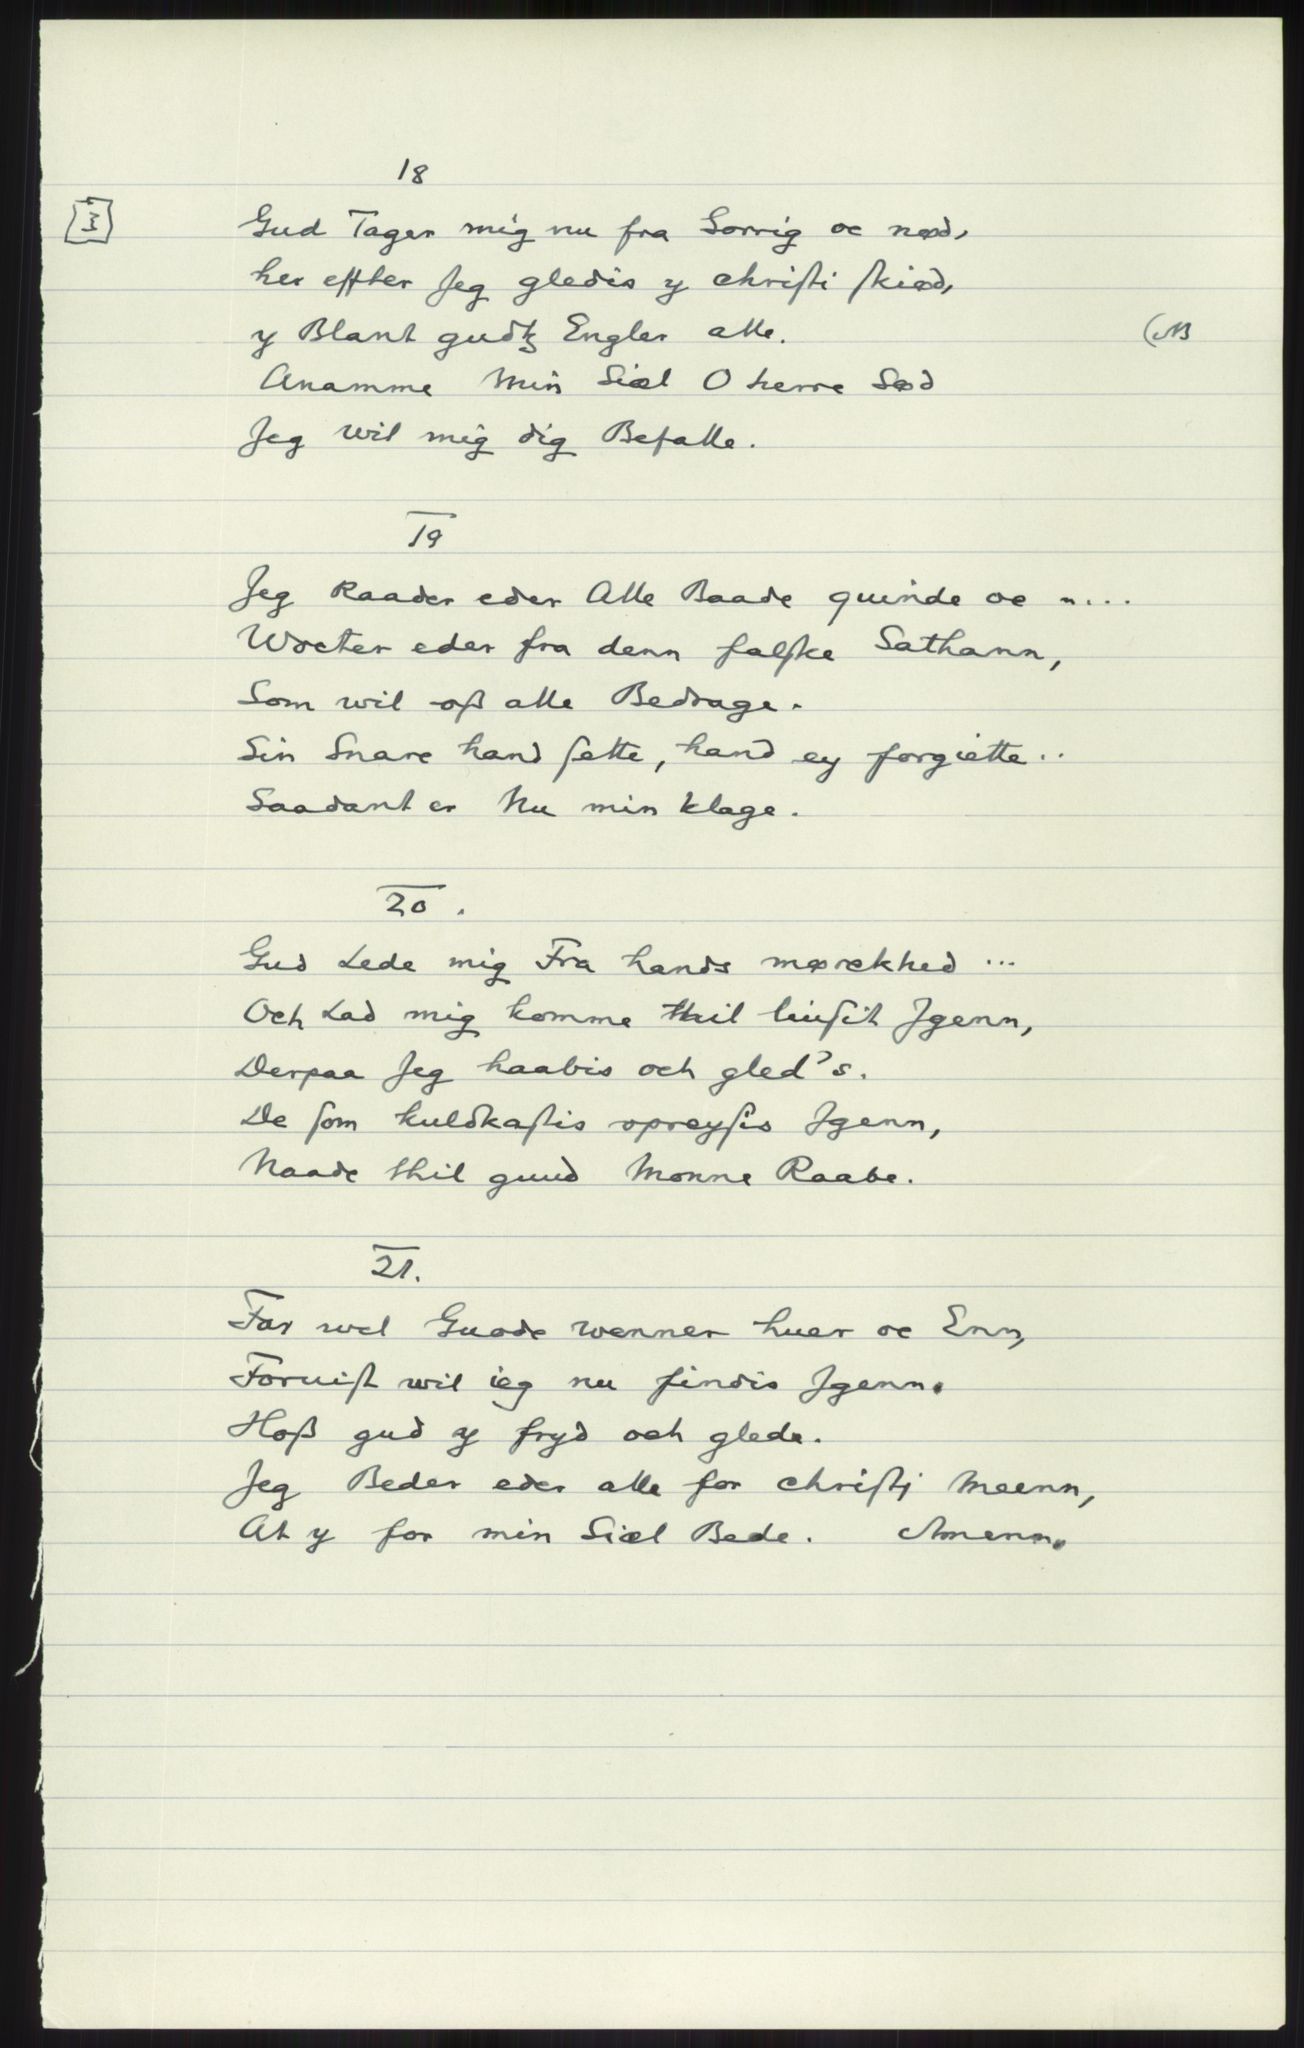 18
3 Gud Tager mig nu fra Sorrig oc nød,
her effter Jeg gledis y chriſti ſkiød,
y Blant gudtz Engler alle. (NB
Anamme Min Siæl O herre Sød
Jeg wil mig dig Befalle.
19
Jeg Raader eder Alle Baade quinde oc n....
Wocter eder fra denn falſke Sathann,
Som wil oß alle Bedrage.
Sin Snare hand ſette, hand ey forgiette..
Saadant er Nu min klage.
20.
Gud Lede mig Fra hands mørckhed ...
Och Lad mig komme thil liuſit Jgenn,
Derpaa Jeg haabis och gled's.
De ſom kuldkaſtis opreyſis Jgenn,
Naade thil guud Monne Raabe.
21.
Far wel Guode wenner huer oc Enn,
Foruiſt wil ieg nu findis Jgenn.
Hoß gud y fryd och glede.
Jeg Beder eder alle for chriſtj Meenn,
At y for min Siæl Bede. Amenn.